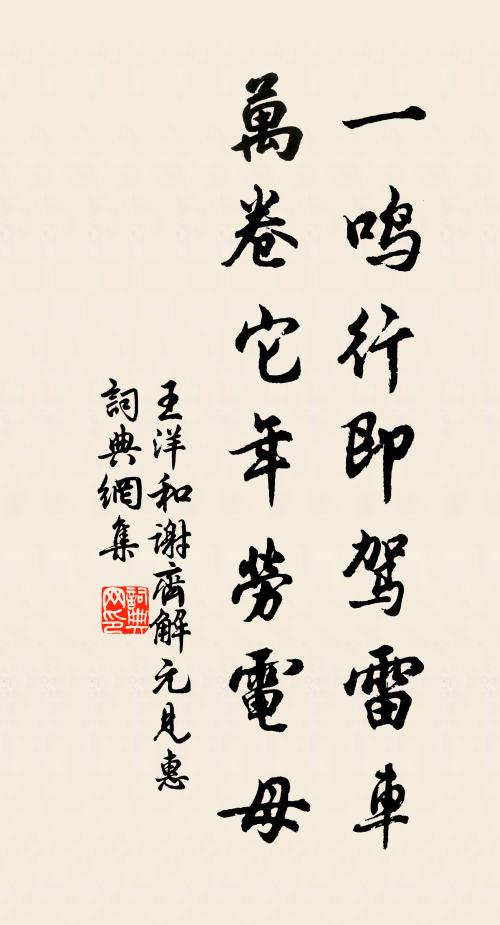 一鳴行即駕雷車
萬卷它年勞電母
王洋和謝齊解元見惠
詞典網集
詞典网印